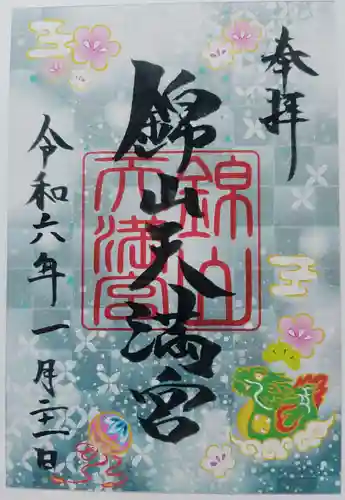 奉拝
錦山天満宮
錦山
天満宮
令和六年一月二十二日